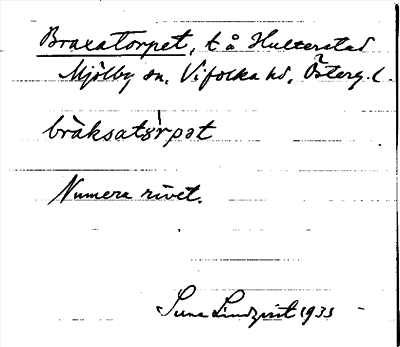 Braxatorpet, t å Hulterstad
Mjölby sn. Vifolka hd, Österg. l.
bràksatór̀pət
Numera rivet.
Sune Lindqvist 1933